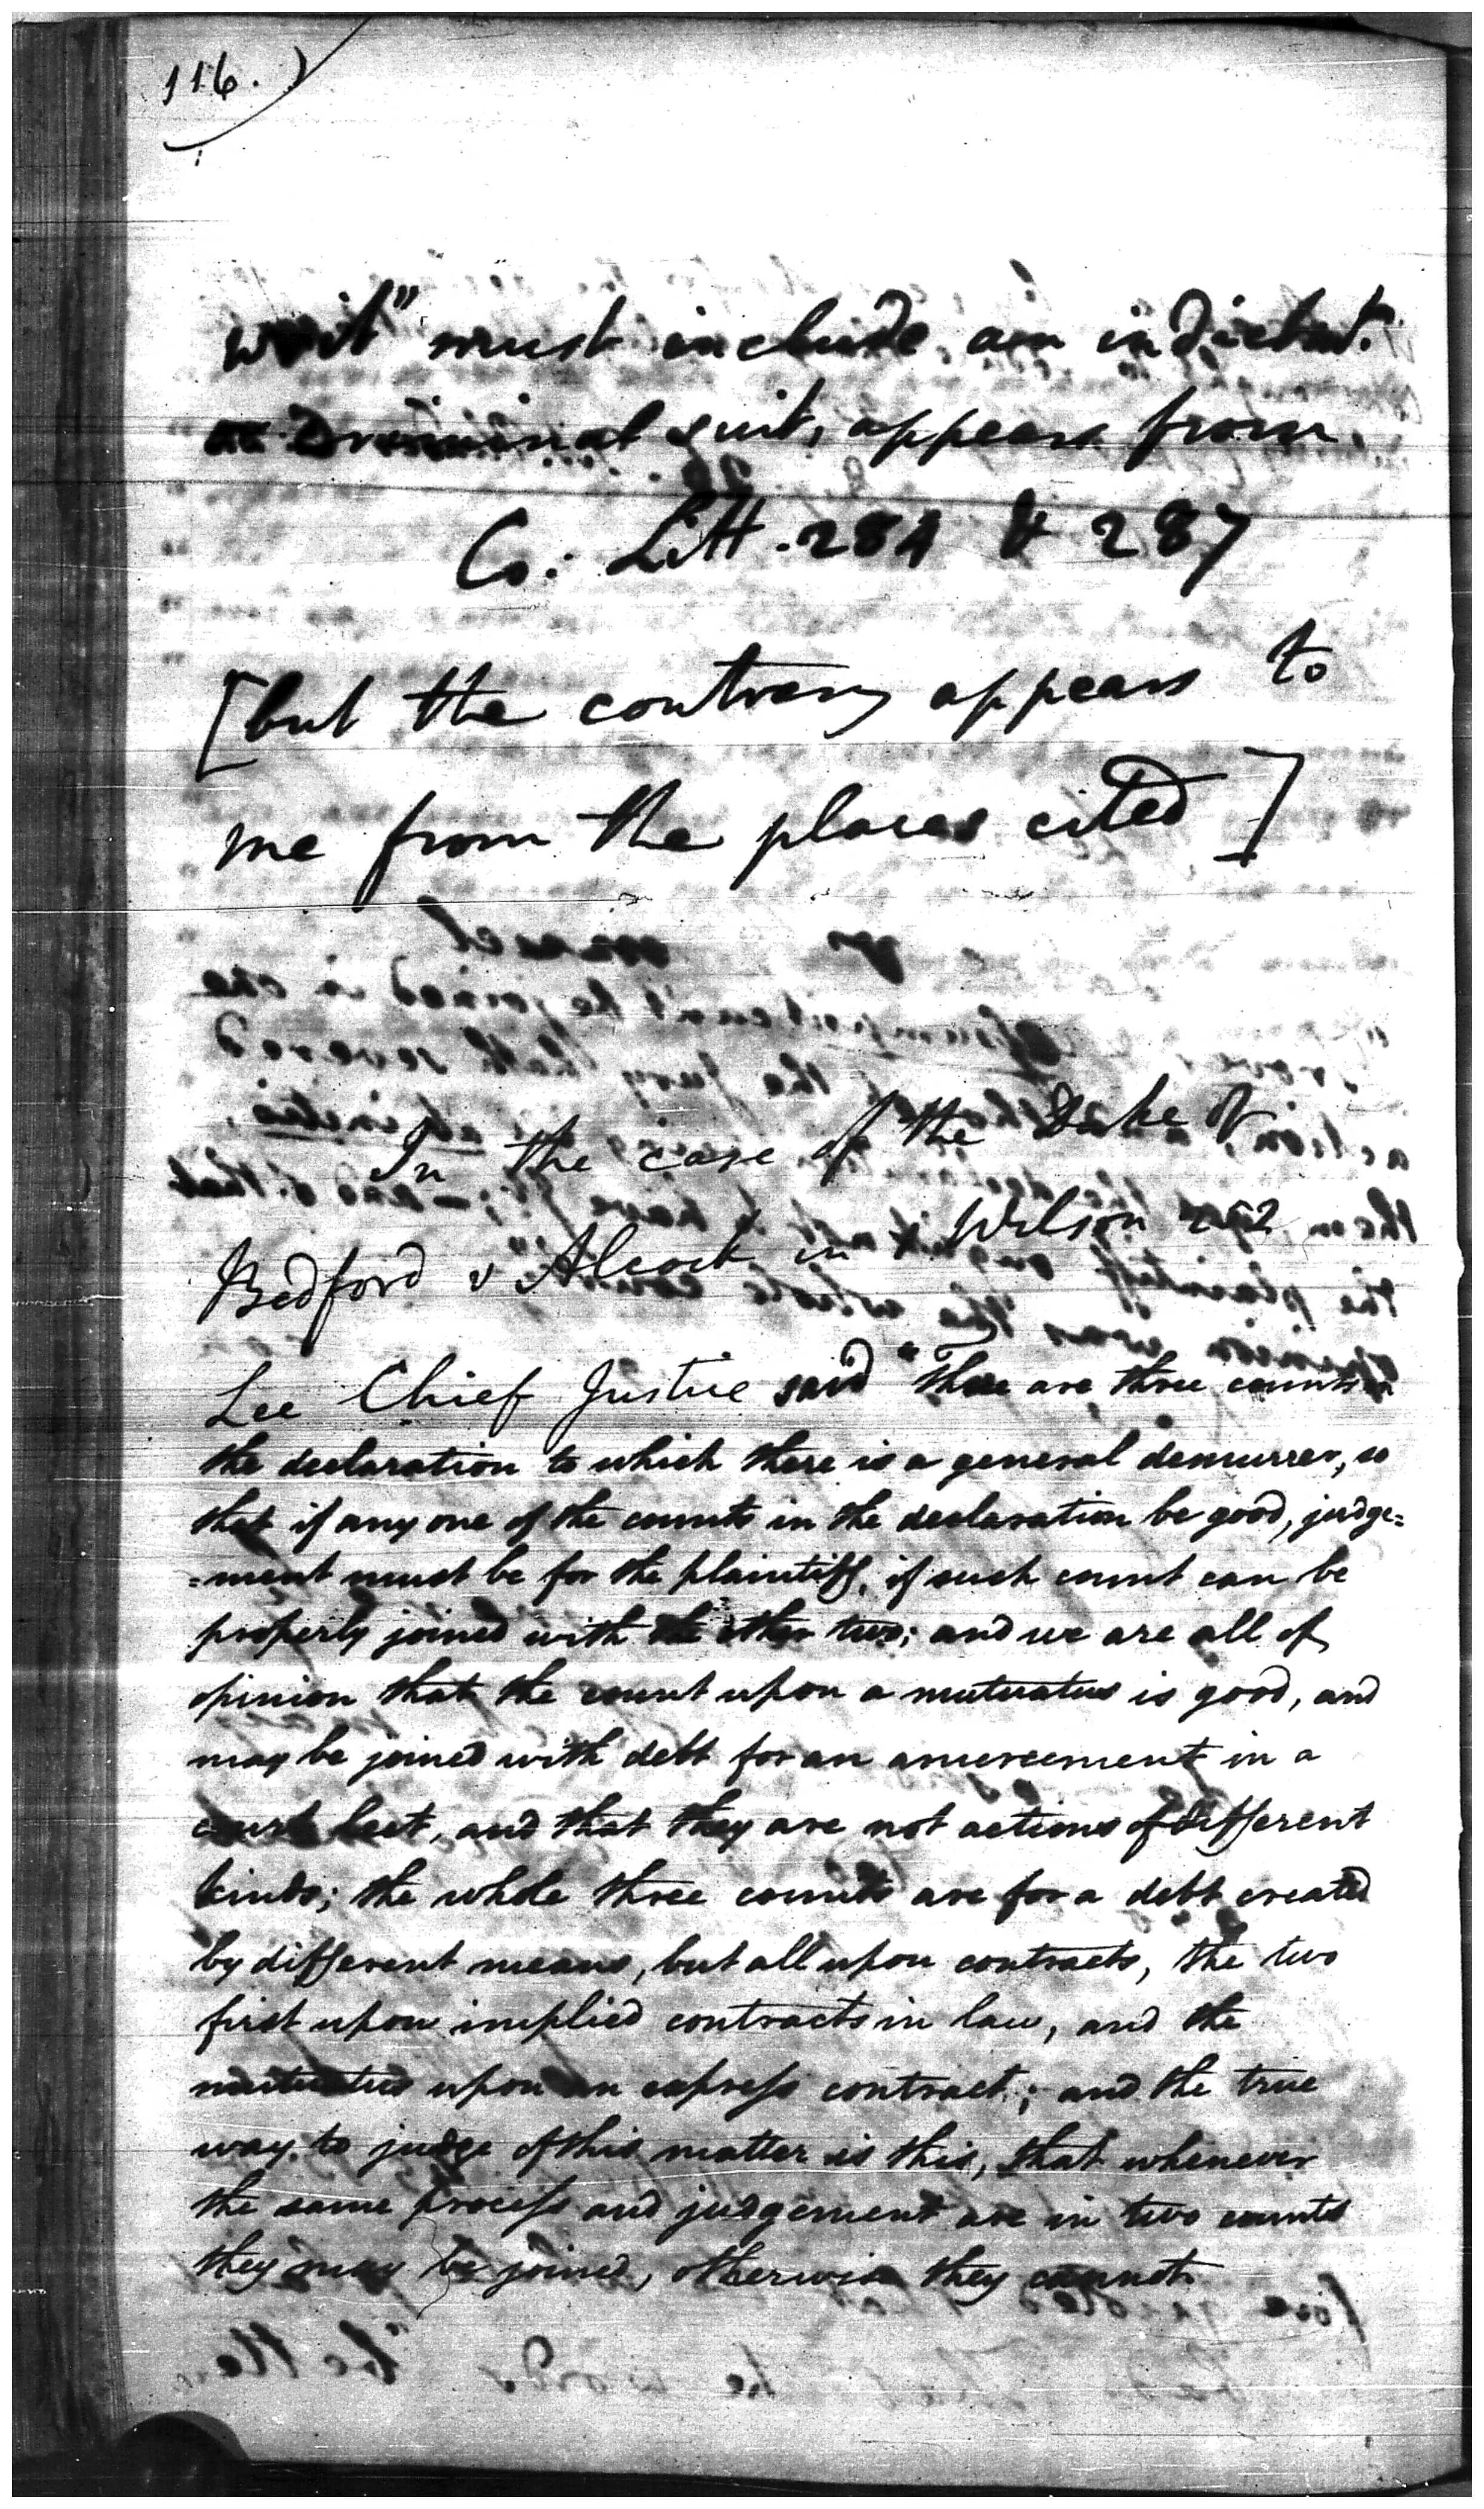 116.)
writ" must include an indictmt.
or Criminal suit, appears from
Co: Litt. 284 & 287
[but the contrary appears to
me from the places cited]
In the case of the Duke of
Bedford v Alcock in 1 Wilson 252
Lee Chief Justice said "There are three counts in
the declaration to which there is a general demurrer, so
that if any one of the counts in the declaration be good, judge=
=ment must be for the plaintiff, if such count can be
properly joined with the other two; and we are all of
opinion that the count upon a mutuatus is good, and
may be joined with debt for an amercement in a
court leet, and that they are not actions of different
kinds; the whole three counts are for a debt created
by different means, but all upon contracts, the two
first upon implied contracts in law, and the
mutuatus upon an express contract; and the true
way to judge of this matter is this, that whenever
the same process and judgement are in two counts
they may be joined, otherwise they cannot.